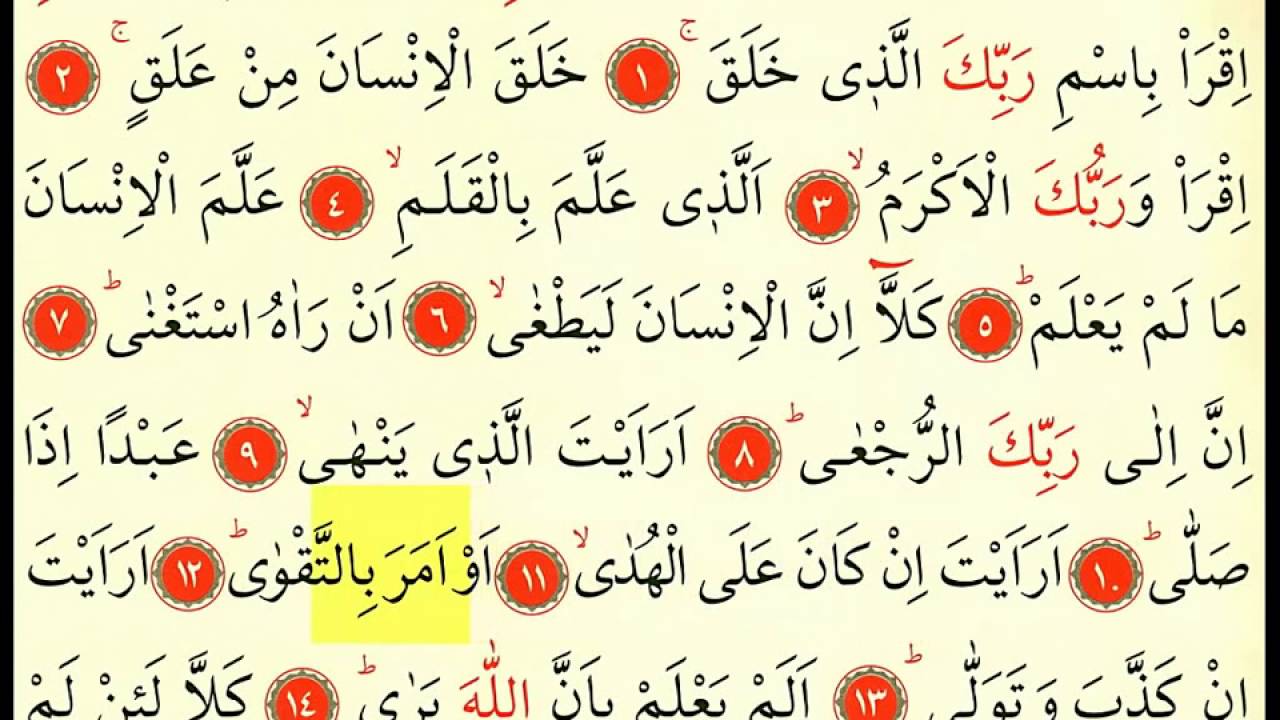 اِقْرَاْ بِاسْمِ رَبِّكَ الَّذ۪ى خَلَقَۚ ١ خَلَقَ الْاِنْسَانَ مِنْ عَلَقٍۚ ٢
اِقْرَاْ وَرَبُّكَ الْاَكْرَمُۙ ٣ اَلَّذ۪ى عَلَّمَ بِالْقَلَمِۙ ٤ عَلَّمَ الْاِنْسَانَ
مَا لَمْ يَعْلَمْۜ ٥ كَلَّٓا اِنَّ الْاِنْسَانَ لَيَطْغٰىۙ ٦ اَنْ رَاٰهُ اسْتَغْنٰىۜ ٧
اِنَّ اِلٰى رَبِّكَ الرُّجْعٰىۜ ٨ اَرَاَيْتَ الَّذ۪ى يَنْهٰىۙ ٩ عَبْدًا اِذَا
صَلّٰىۜ ١٠ اَرَاَيْتَ اِنْ كَانَ عَلَى الْهُدٰىۙ ١١ اَوْ اَمَرَ بِالتَّقْوٰىۜ ١٢ اَرَاَيْتَ
اِنْ كَذَّبَ وَتَوَلّٰىۜ ١٣ اَلَمْ يَعْلَمْ بِاَنَّ اللّٰهَ يَرٰىۜ ١٤ كَلَّا لَئِنْ لَمْ